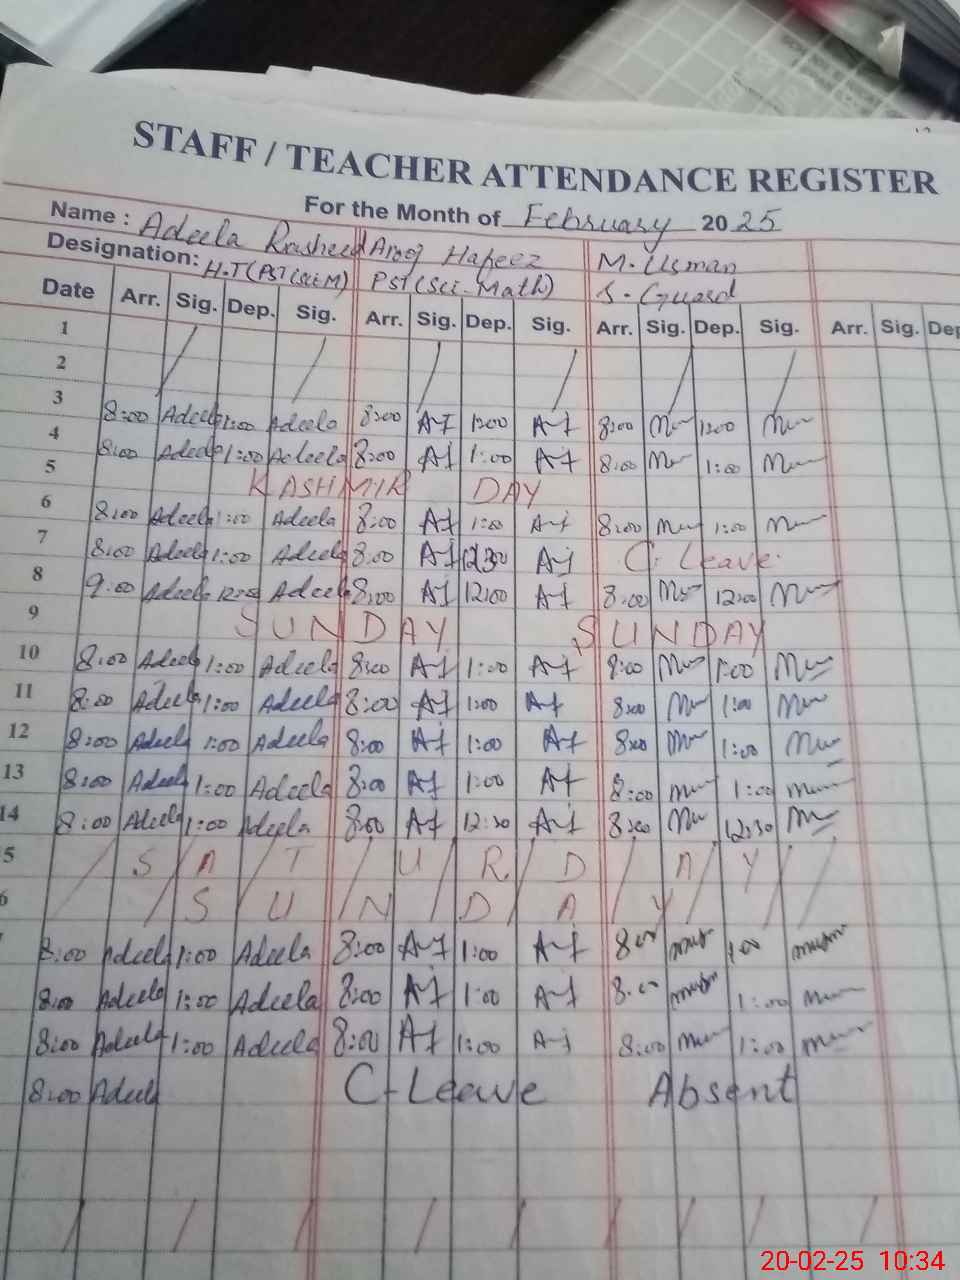 STAFF / TEACHER ATTENDANCE REGISTER
For the Month of February 2025
Name : Adeela Rasheed Arooj Hafeez M. Usman
Designation: H.T(PST(Sci.M) PST(Sci.Math) S. Guard
Date Arr. Sig. Dep. Sig. Arr. Sig. Dep. Sig. Arr. Sig. Dep. Sig. Arr. Sig. Dep
1
2
3 8:00 Adeela 1:00 Adeela 8:00 A-J 1:00 A-J 8:00 1:00
4 8:00 Adeela 1:00 Adeela 8:00 AJ 1:00 A-J 8:00 1:00
5 KASHMIR DAY
6 8:00 Adeela 1:00 Adeela 8:00 AJ 1:00 A-J 8:00 1:00
7 8:00 Adeela 1:00 Adeela 8:00 A-J 12:30 A-J C. Leave
8 9:00 Adeela Adeela 8:00 AJ 12:00 A-J 8:00 12:00
9 SUNDAY SUNDAY
10 8:00 Adeela 1:00 Adeela 8:00 A-J 1:00 A-J 8:00 1:00
11 8:00 Adeela 1:00 Adeela 8:00 A-J 1:00 A-J 8:00 1:00
12 8:00 Adeela 1:00 Adeela 8:00 A-J 1:00 A-J 8:00 1:00
13 8:00 Adeela 1:00 Adeela 8:00 A-J 1:00 A-J 8:00 1:00
14 8:00 Adeela 1:00 Adeela 8:00 A-J 12:30 A-J 8:00 12:30
5 SATURDAY
6 SUNDAY
8:00 Adeela 1:00 Adeela 8:00 A-J 1:00 A-J 8:00 1:00
8:00 Adeela 1:00 Adeela 8:00 A-J 1:00 A-J 8:00 1:00
8:00 Adeela 1:00 Adeela 8:00 A-J 1:00 A-J 8:00 1:00
8:00 Adeela C-Leave Absent
20-02-25 10:34